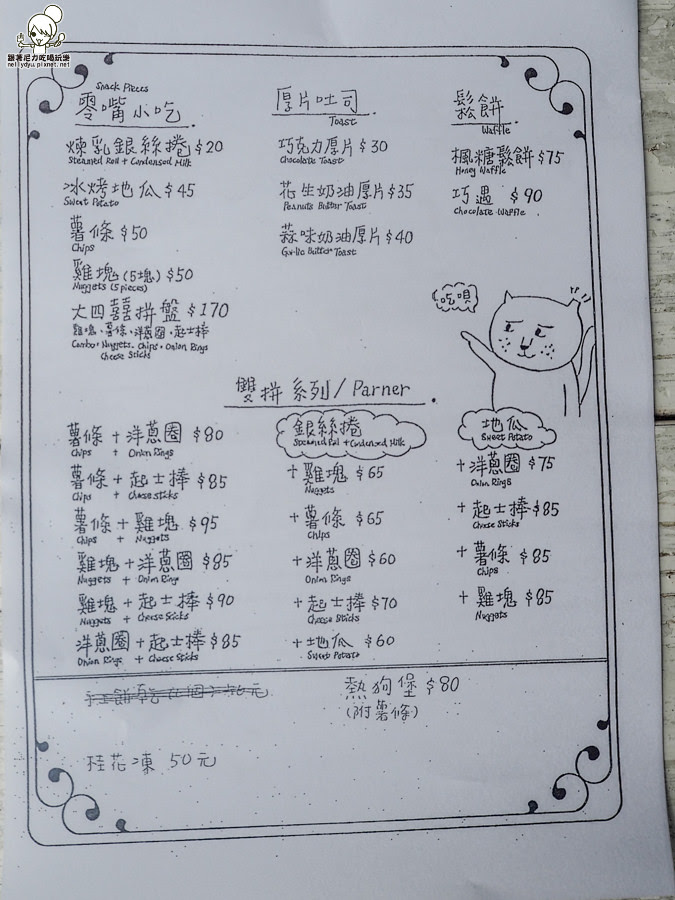 跟著尼力吃喝玩樂
nellydyu.pixnet.net
Snack Pieces
零嘴小吃
煉乳銀絲捲 $20
Steamed Roll + Condensed Milk
冰烤地瓜 $45
Sweet Potato
薯條 $50
Chips
雞塊(5塊) $50
Nuggets (5 pieces)
大四囍拼盤 $170
雞塊、薯條、洋蔥圈、起士捧
Combo: Nuggets. Chips. Onion Rings
Cheese Sticks
厚片吐司
Toast
巧克力厚片 $30
Chocolate Toast
花生奶油厚片 $35
Peanuts Butter Toast
蒜味奶油厚片 $40
Garlic Butter Toast
鬆餅
Waffle
楓糖鬆餅 $75
Honey Waffle
巧遇 $90
Chocolate Waffle
吃唄
雙拼系列/Parner
薯條 + 洋蔥圈 $80
Chips + Onion Rings
薯條 + 起士捧 $85
Chips + Cheese Sticks
薯條 + 雞塊 $95
Chips + Nuggets
雞塊 + 洋蔥圈 $85
Nuggets + Onion Ring
雞塊 + 起士捧 $90
Nuggets + Cheese Sticks
洋蔥圈 + 起士捧 $85
Onion Rings + Cheese Sticks
銀絲捲
Steamed Roll + Condensed Milk
+ 雞塊 $65
Nuggets
+ 薯條 $65
Chips
+ 洋蔥圈 $60
Onion Rings
+ 起士捧 $70
Cheese Sticks
+ 地瓜 $60
Sweet Potato
地瓜
Sweet Potato
+ 洋蔥圈 $75
Onion Rings
+ 起士捧 $85
Cheese Sticks
+ 薯條 $85
Chips
+ 雞塊 $85
Nuggets
熱狗堡 $80
(附薯條)
桂花凍 50元